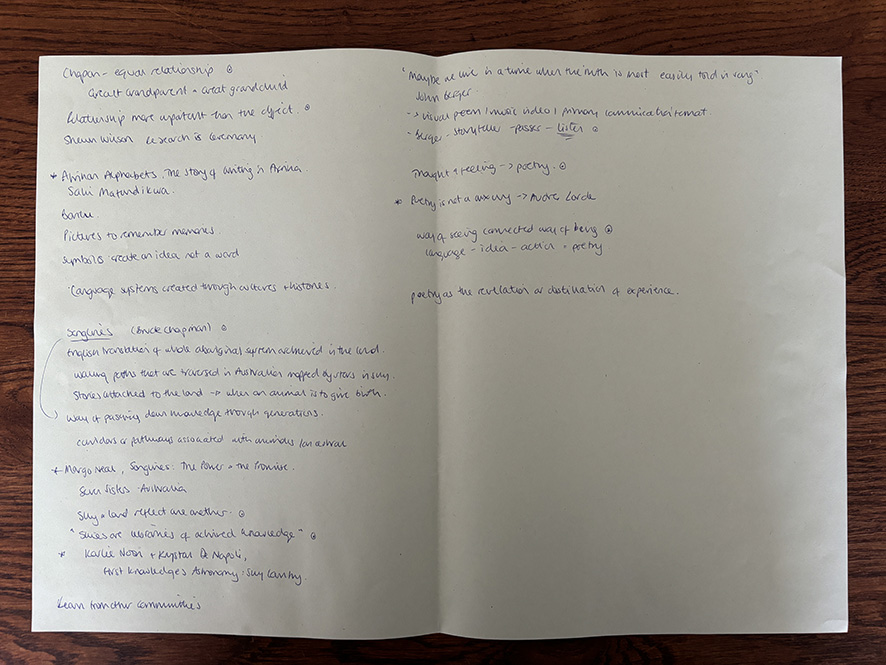 Chapan - equal relationship
Great Grandparent + Great grandchild
Relationship more important than the object.
Shawn Wilson Research is Ceremony
* Afrikan Alphabets. The story of writing in Africa
Saki Mafundikwa.
Pictures to remember memories.
Symbols create an idea not a word
Language systems created through cultures + histories.
Songlines (Bruce Chapman)
English translation of whole aboriginal system archived in the land.
walking paths that are traversed in Australia mapped by stars in sky.
Stories attached to the land -> when an animal is to give birth.
way of passing down knowledge through generations.
corridors or pathways associated with animals / an ancestral
* Margo Neal, Songlines: The Power + the Promise.
Seven Sisters Australia
Sky + land reflect one another.
"Skies are libraries of archived knowledge"
* Karlie Noon + Krystal De Napoli,
First Knowledges Astronomy: Sky Country.
Learn from other communities
"Maybe we live in a time when the truth is most easily told in song"
John Berger.
-> visual poem / music video / primary communication format.
Berger - storyteller - passer - listen
Thought + feeling -> poetry.
* Poetry is not a luxury -> Audre Lorde
way of seeing connected way of being
language - idea - action + poetry
poetry as the revelation or distillation of experience.